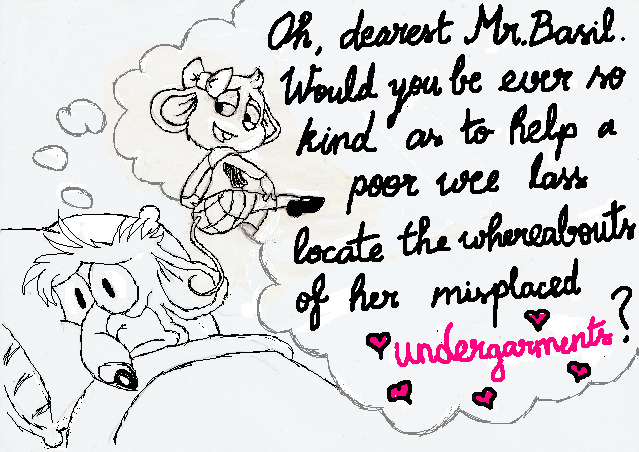 Oh, dearest Mr. Basil.
Would you be ever so
kind as to help a
poor wee lass
locate the whereabouts
of her misplaced
undergarments?